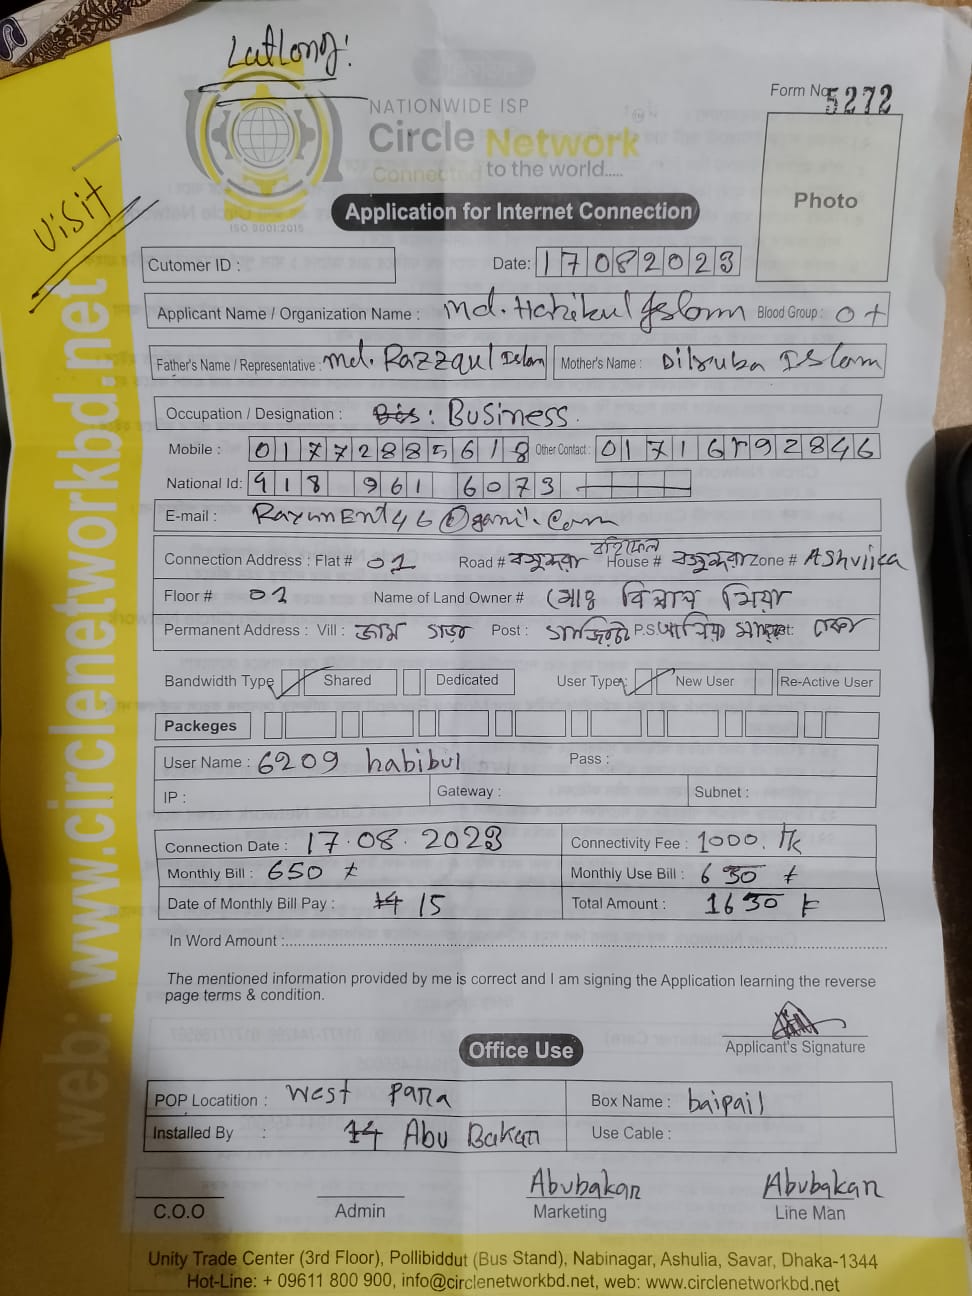 LatLong:
Form No. 5272
NATIONWIDE ISP
Circle Network
Connected to the world.....
ISO 9001:2015
Photo
Application for Internet Connection
VISIT
Cutomer ID :
Date: 17082023
Applicant Name / Organization Name : Md. Habibul Islam Blood Group : O+
Father's Name / Representative : Md. Razzaqul Islam Mother's Name : Dilruba Islam
Occupation / Designation : : Business.
Mobile : 01772885618 Other Contact : 0171692846
National Id: 918 961 6073
E-mail :
Connection Address : Flat # 01 Road # House # Zone # Ashulia
Floor # 01 Name of Land Owner # মিয়া
Permanent Address : Vill : Post : P.S. ঢাকা
Bandwidth Type : Shared Dedicated User Type : New User Re-Active User
Packeges
User Name : 6209 habibul Pass :
IP : Gateway : Subnet :
Connection Date : 17.08.2023 Connectivity Fee : 1000. Tk
Monthly Bill : 650 t Monthly Use Bill : 630 t
Date of Monthly Bill Pay : 15 Total Amount : 1630 t
In Word Amount :
The mentioned information provided by me is correct and I am signing the Application learning the reverse
page terms & condition.
Applicant's Signature
Office Use
POP Locatition : West Para Box Name : baipail
Installed By : Abu Bakar Use Cable :
Abubakar Abubakar
C.O.O Admin Marketing Line Man
Unity Trade Center (3rd Floor), Pollibiddut (Bus Stand), Nabinagar, Ashulia, Savar, Dhaka-1344
Hot-Line: + 09611 800 900, info@circlenetworkbd.net, web: www.circlenetworkbd.net
web: www.circlenetworkbd.net